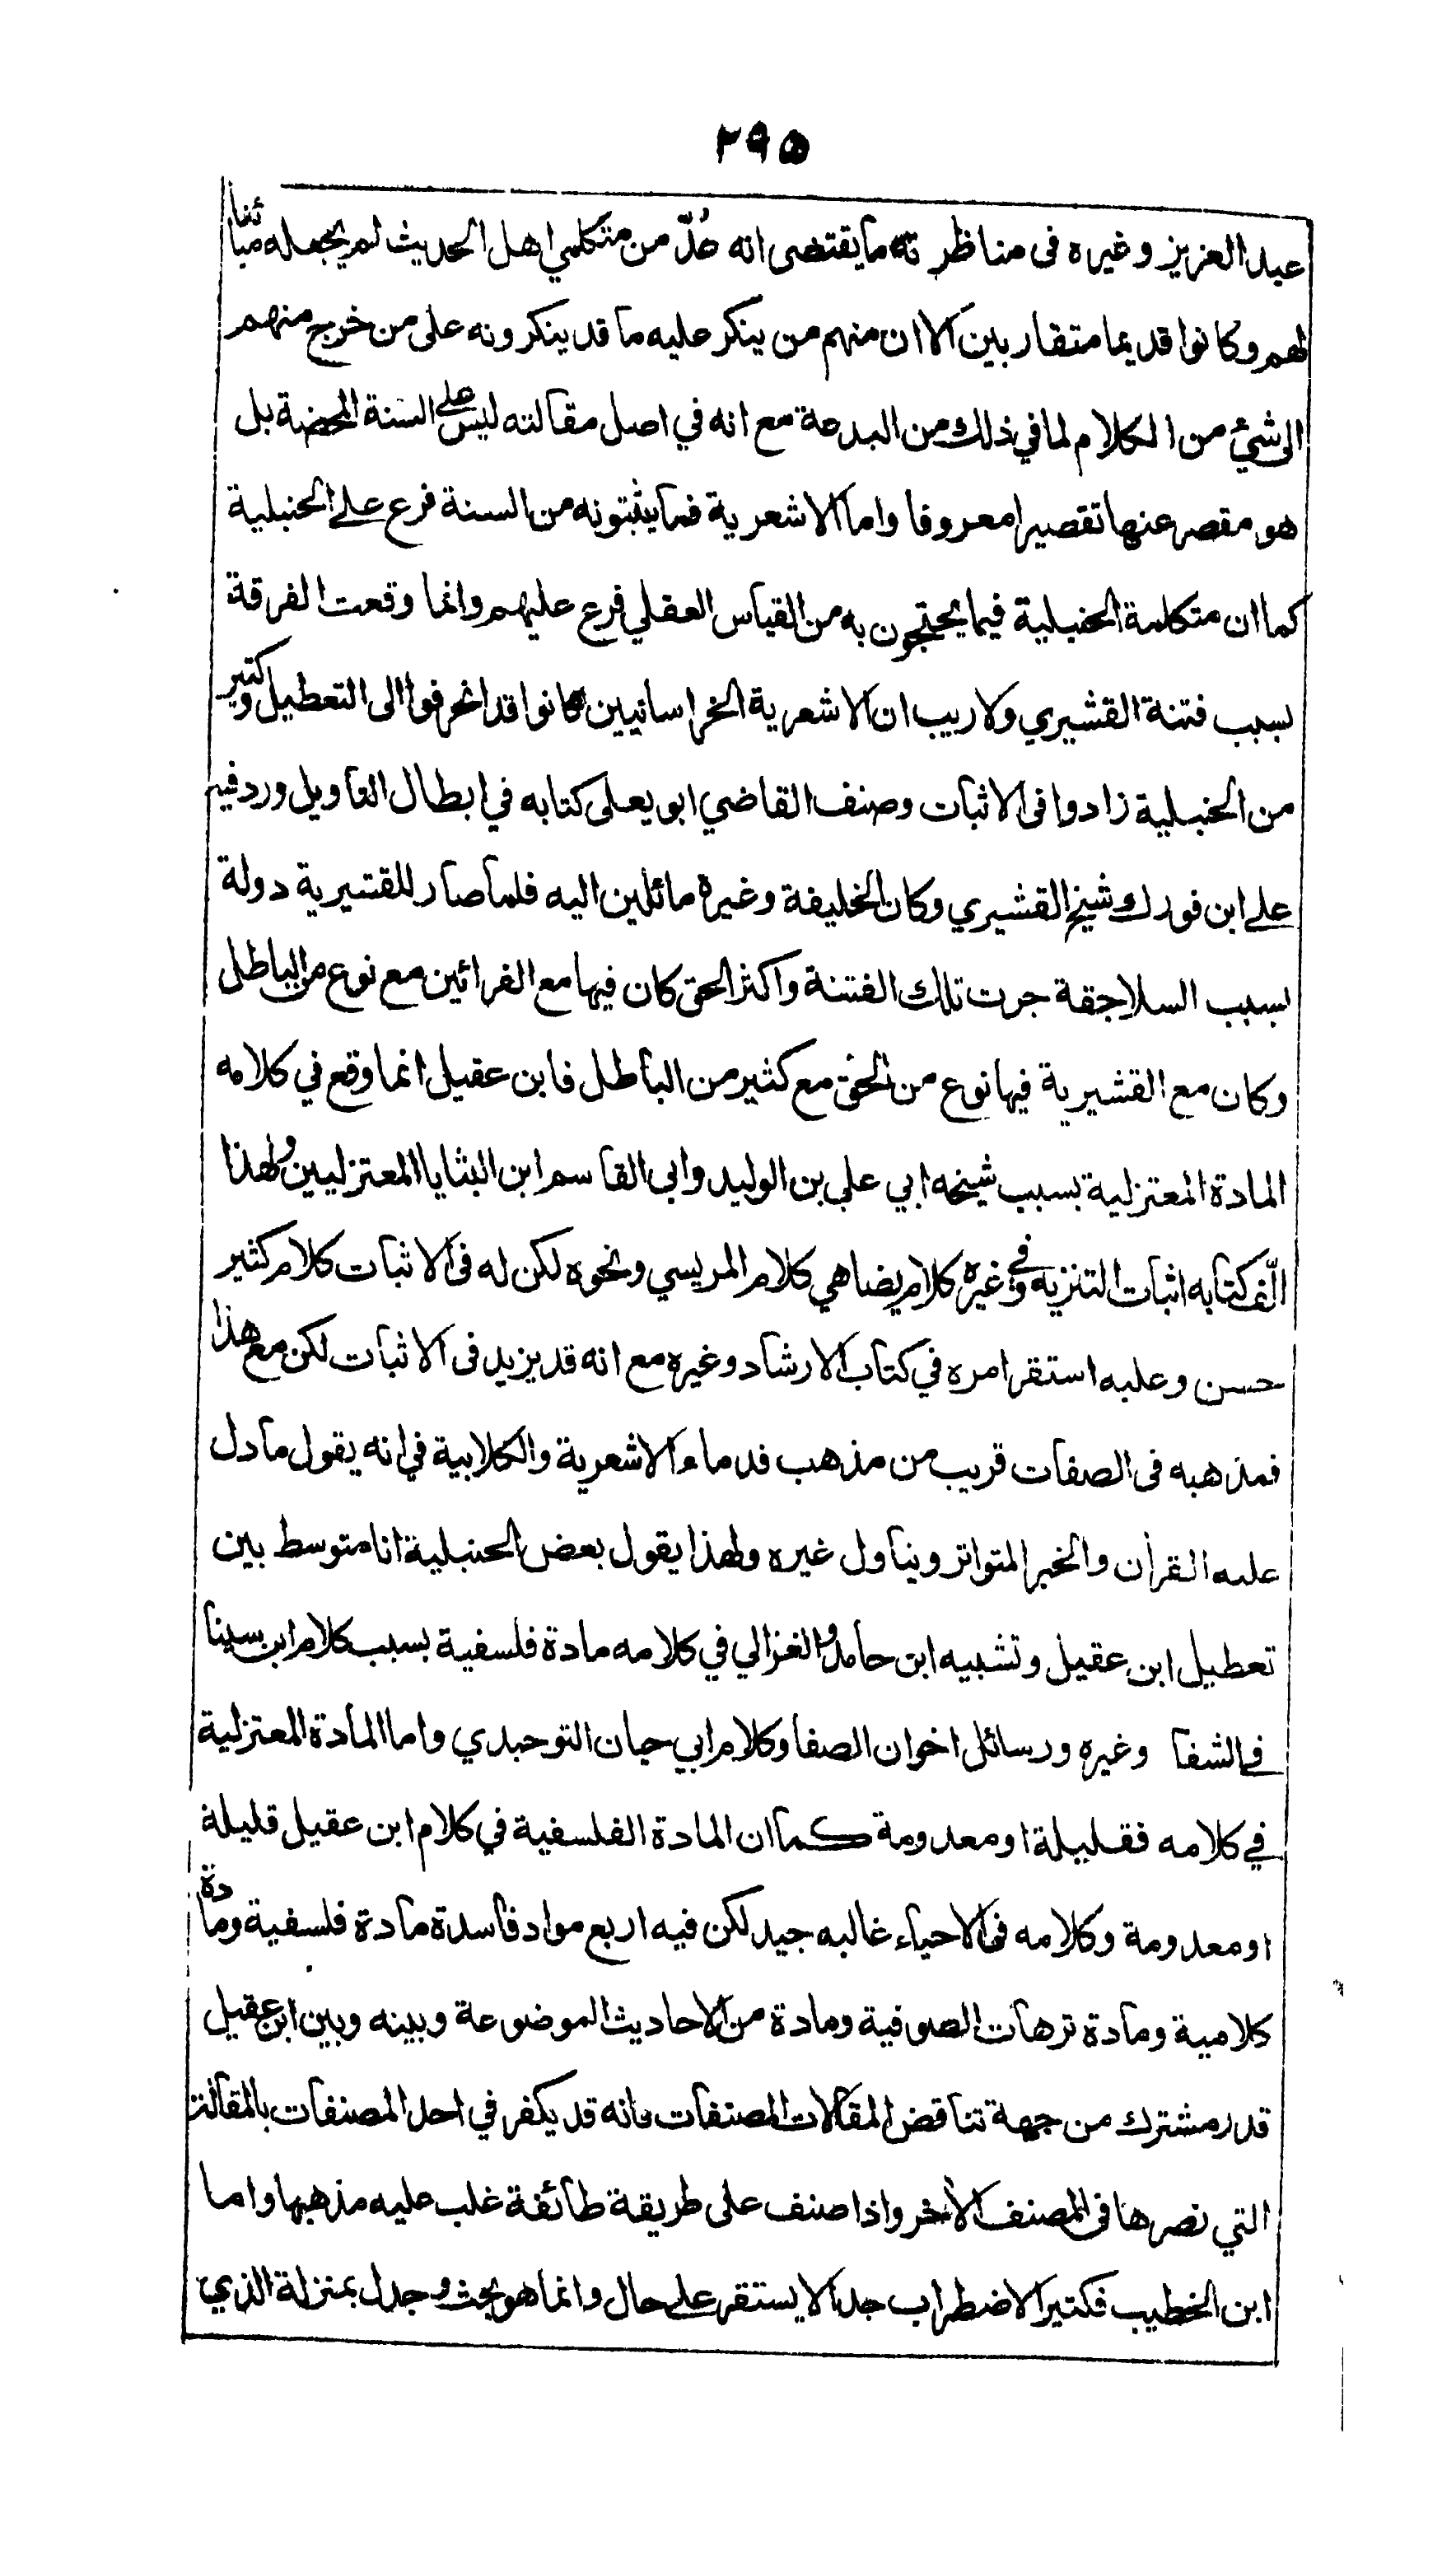 ٢٩٥
عبد العزيز وغيره فى مناظر ته ما يقتضى انه عُدّ من متكلمي اهل الحديث لم يجعله مبائنا
لهم وكانوا قديما متقاربين الا ان منهم من ينكر عليه ما قد ينكرونه على من خرج منهم
الى شيئ من الكلام لما في ذلك من البدعة مع انه في اصل مقالته ليس على السنة المحضة بل
هو مقصر عنها تقصيرا معروفا واما الاشعرية فما يثبتونه من السنة فرع على الحنبلية
كما ان متكلمة الحنبلية فيما يحتجون به من القياس العقلي فرع عليهم وانما وقعت الفرقة
بسبب فتنة القشيري ولا ريب ان الاشعرية الخراسانيين كانوا قد انحرفوا الى التعطيل وكثير
من الحنبلية زادوا فى الاثبات وصنف القاضي ابو يعلى كتابه في ابطال التاويل ورد فيه
على ابن فورك وشيخ القشيري وكان الخليفة وغيره مائلين اليه فلما صار للقشيرية دولة
بسبب السلاجقة جرت تلك الفتنة واكثر الحق كان فيها مع الفرائين مع نوع من الباطل
وكان مع القشيرية فيها نوع من الحق مع كثير من الباطل فابن عقيل انما وقع في كلامه
المادة المعتزلية بسبب شيخه ابي علي بن الوليد وابى القاسم ابن البثايا المعتزليين ولهذا
الّف كتابه اثبات التنزيه وفي غيره كلام يضاهي كلام المريسي ونحوه لكن له فى الاثبات كلام كثير
حسن وعليه استقر امره في كتاب الارشاد وغيره مع انه قد يزيد فى الاثبات لكن مع هذا
فمذهبه فى الصفات قريب من مذهب قدماء الاشعرية والكلابية في انه يقول ما دل
عليه القران والخبر المتواتر ويتاول غيره ولهذا يقول بعض الحنبلية انا متوسط بين
تعطيل ابن عقيل وتشبيه ابن حامد والغزالي في كلامه مادة فلسفية بسبب كلام ابن سينا
في الشفا وغيره ورسائل اخوان الصفا وكلام ابي حيان التوحيدي واما المادة المعتزلية
في كلامه فقليلة او معدومة كما ان المادة الفلسفية في كلام ابن عقيل قليلة
او معدومة وكلامه فى الاحياء غالبه جيد لكن فيه اربع مواد فاسدة مادة فلسفية ومادة
كلامية ومادة ترهات الصوفية ومادة من الاحاديث الموضوعة وبينه وبين ابن عقيل
قدر مشترك من جهة تناقض المقالات المصنفات فانه قد يكفر في احد المصنفات بالمقالة
التي نصرها فى المصنف الآخر واذا صنف على طريقة طائفة غلب عليه مذهبها واما
ابن الخطيب فكثير الاضطراب جدا لا يستقر على حال وانما هو بحث وجدل بمنزلة الذي